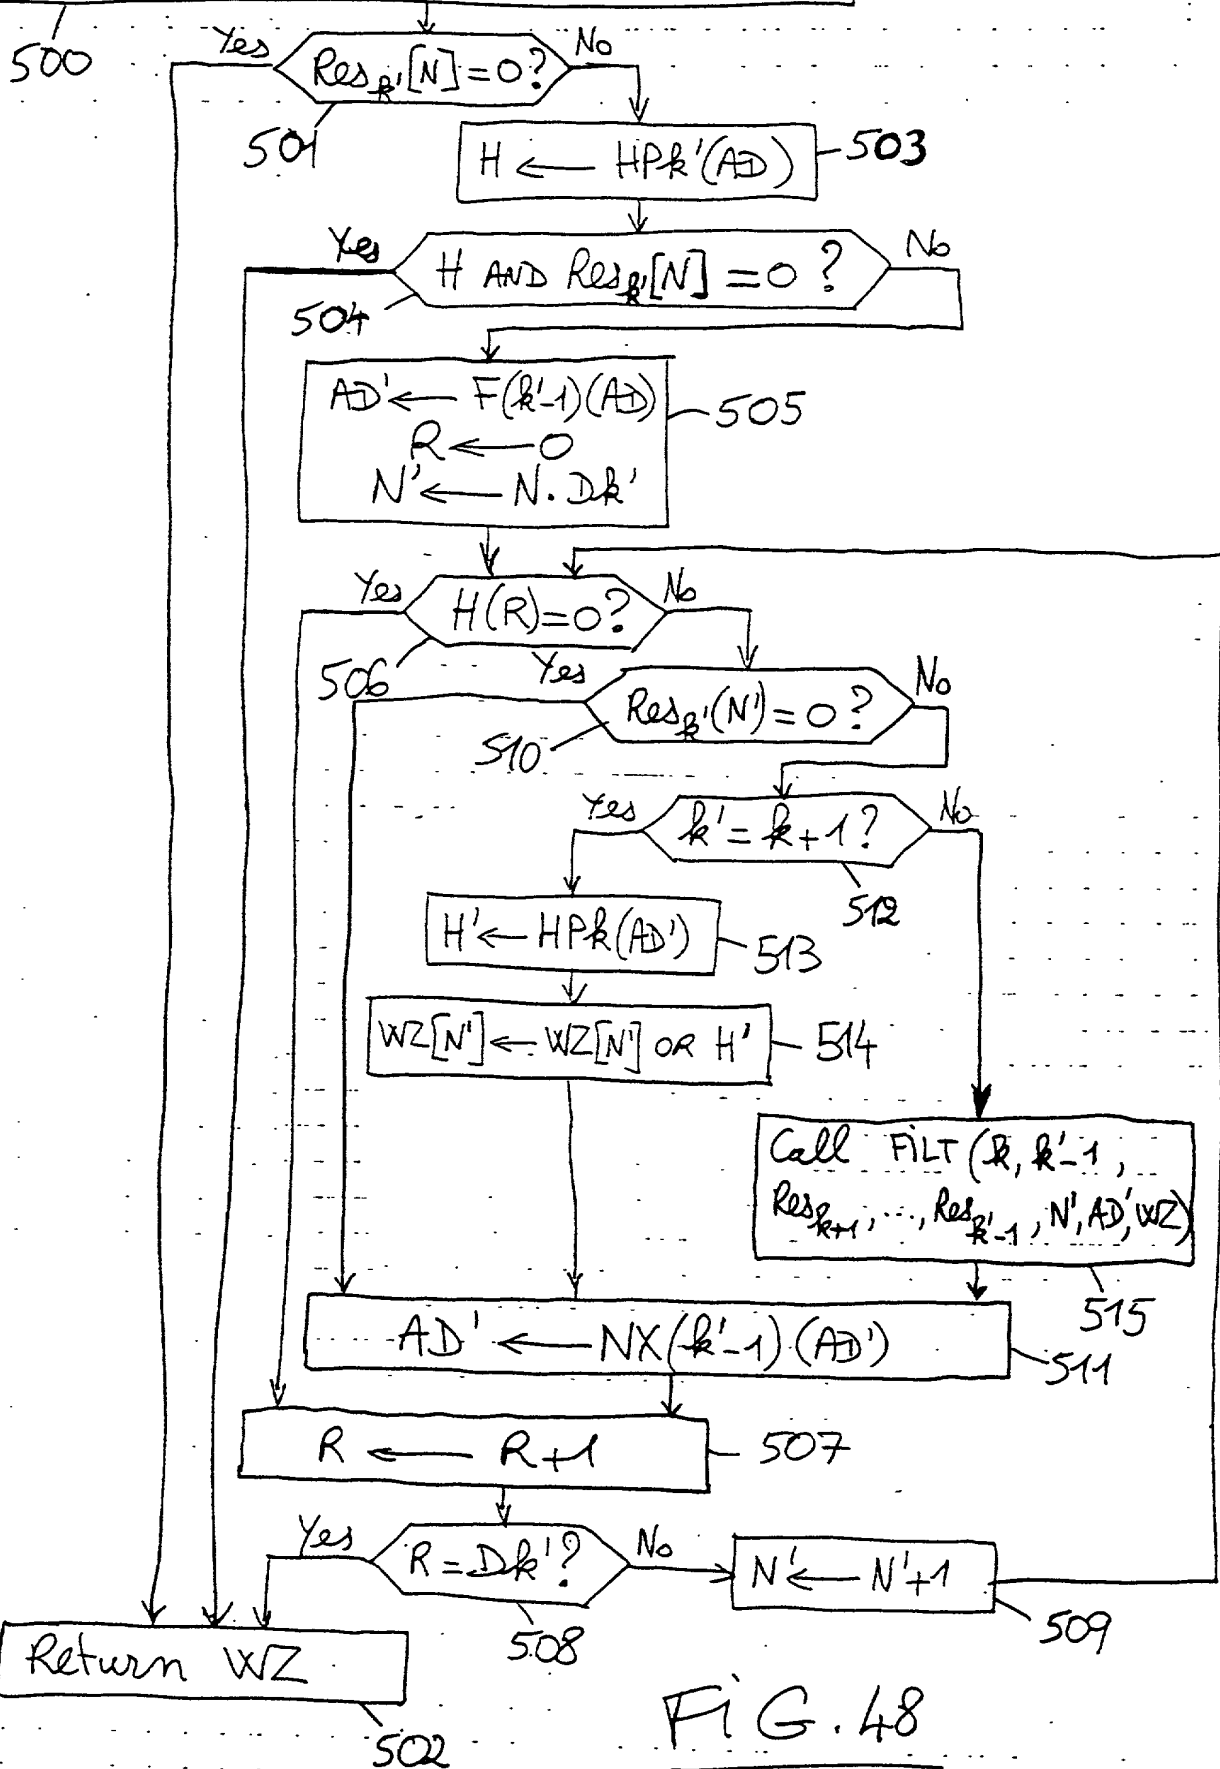 500
Yes
Res_k'[N]=0?
No
501
H ← HPk'(AD)
503
Yes
H AND Res_k'[N]=0?
No
504
AD' ← F(k'-1)(AD)
R ← 0
N' ← N.Dk'
505
Yes
H(R)=0?
No
506
Yes
Res_k'(N')=0?
No
510
Yes
k'=k+1?
No
512
H' ← HPk(AD')
513
WZ[N'] ← WZ[N'] OR H'
514
Call FiLT(k, k'-1,
Res_k+1, ..., Res_k'-1, N', AD', WZ)
515
AD' ← NX(k'-1)(AD')
511
R ← R+1
507
Yes
R=Dk'?
No
508
N' ← N'+1
509
Return WZ
502
FiG.48